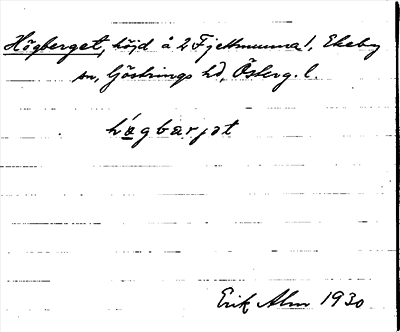 Högberget, höjd å 2 Fjettmunna!, Ekeby
sn, Göstrings hd, Österg. l.
hǿgbærjət
Erik Alm 1930